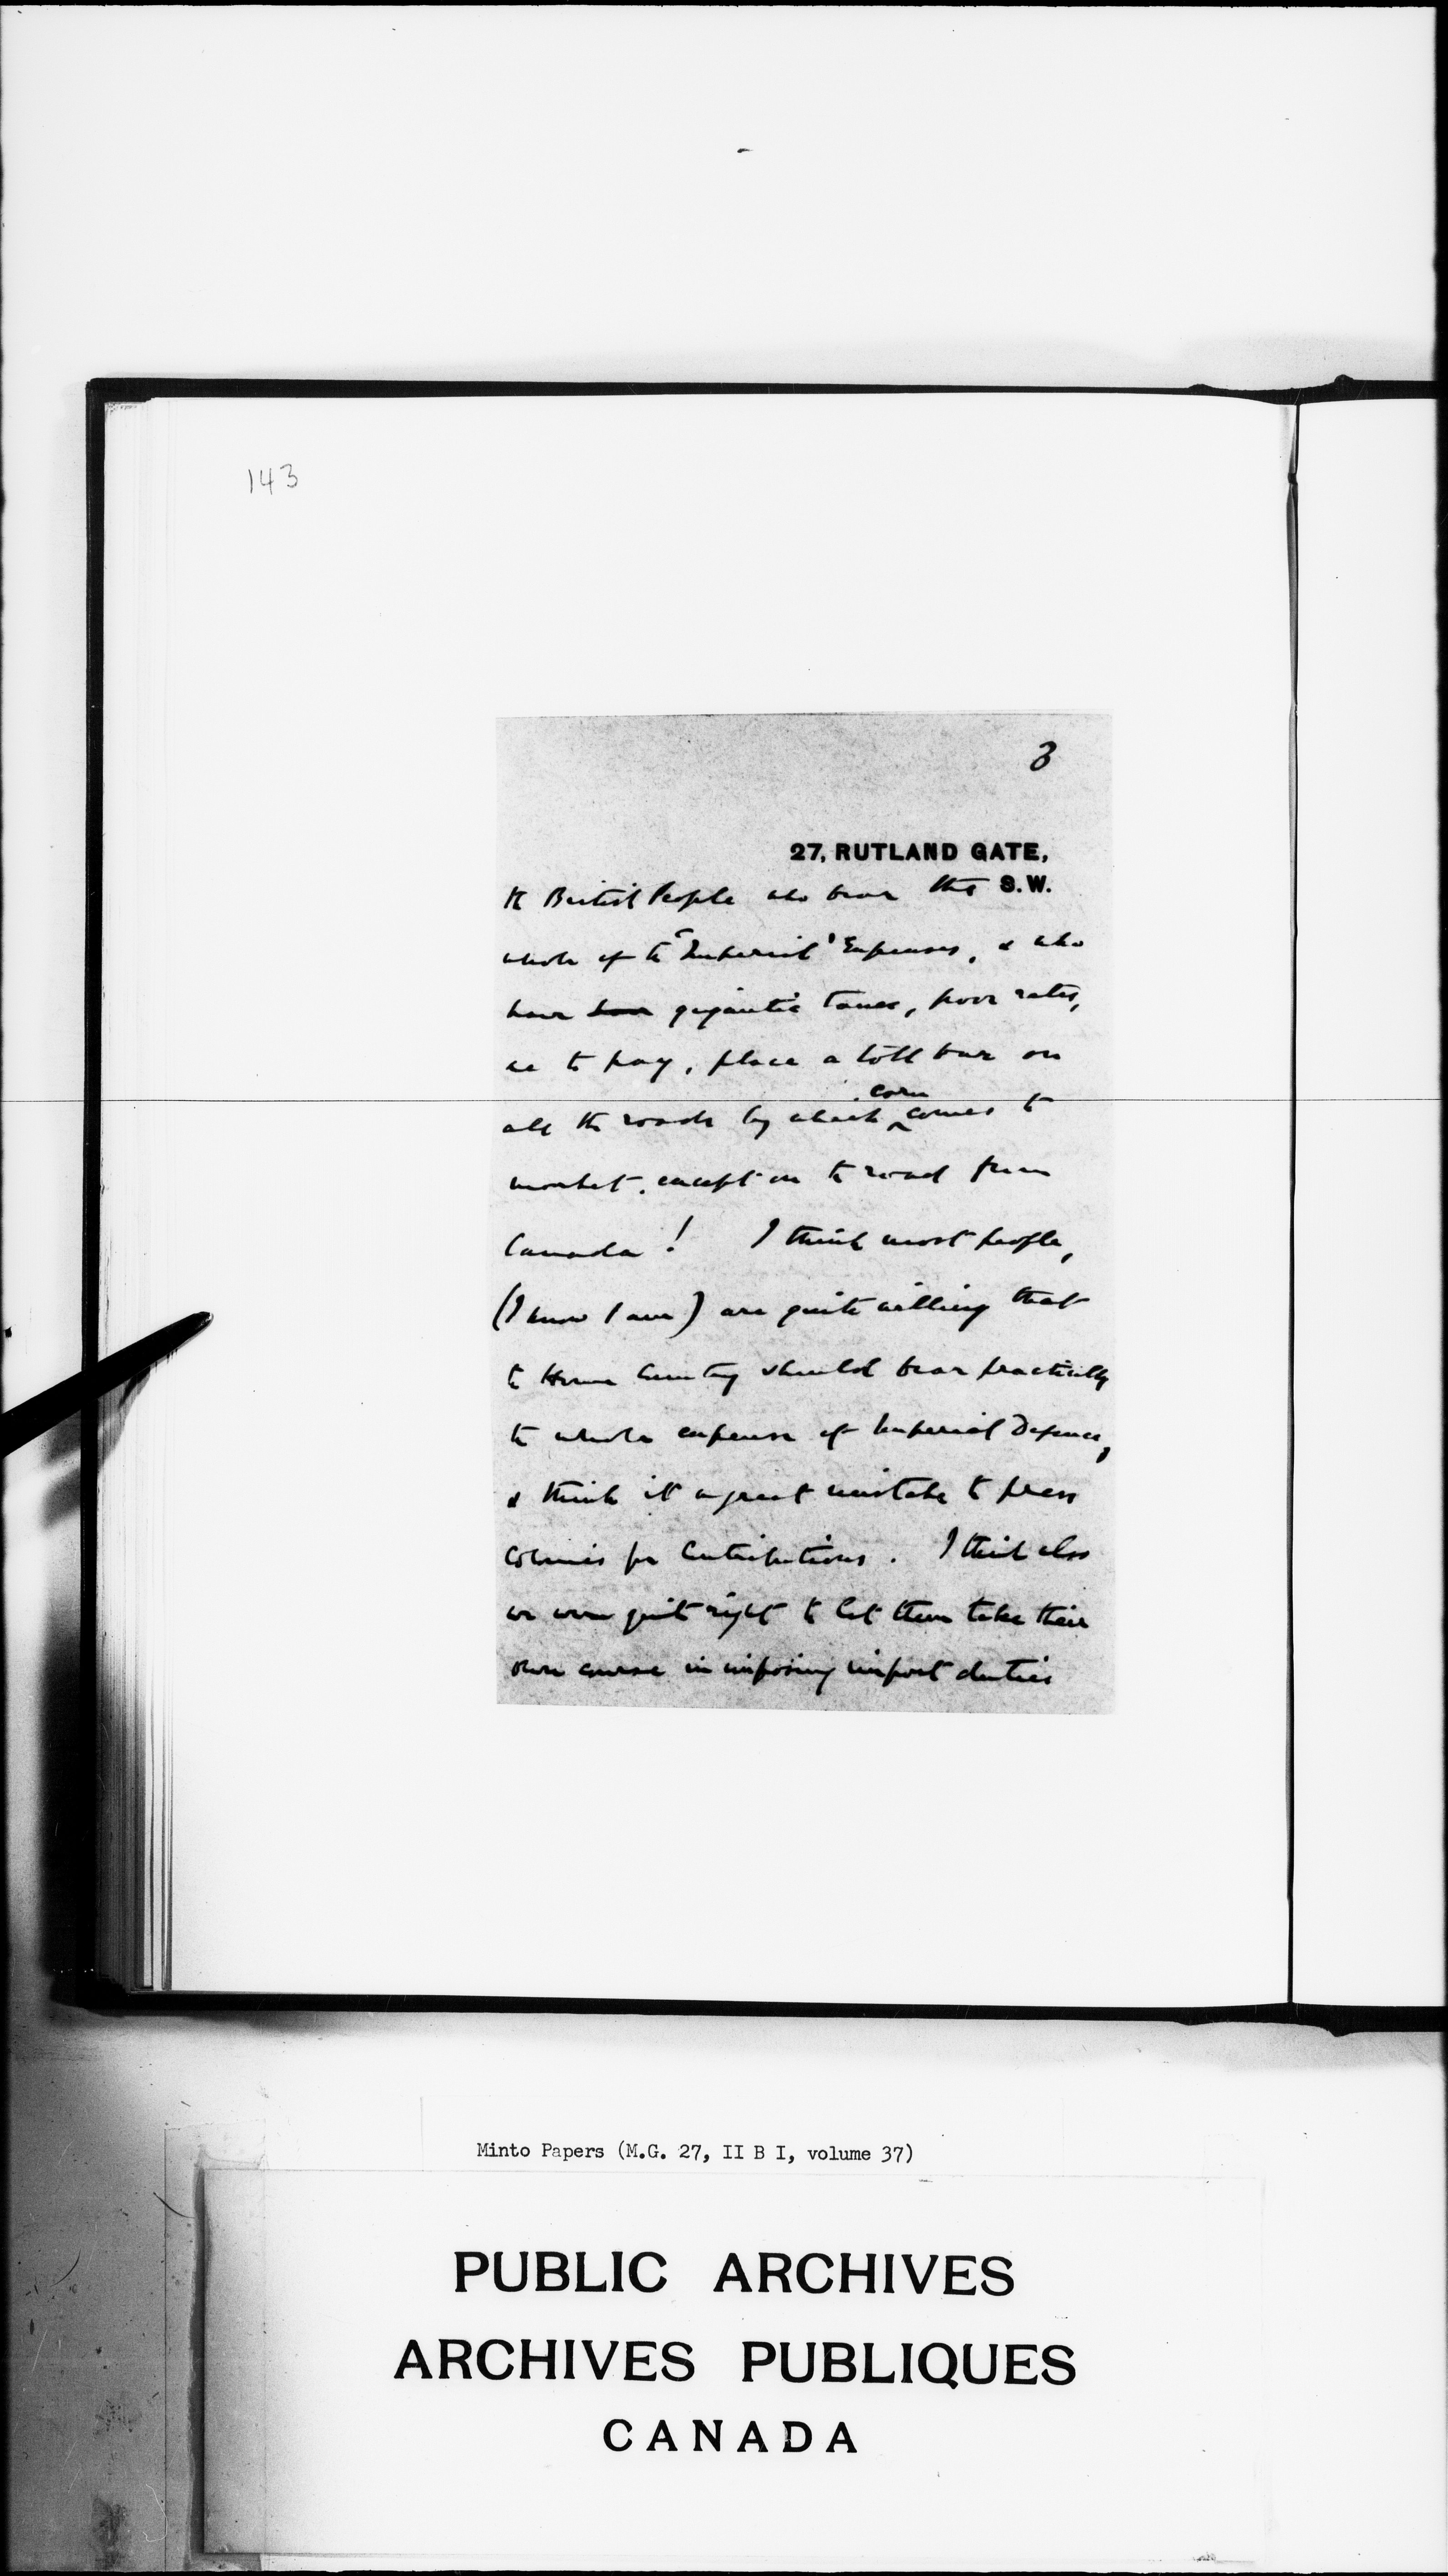 143
3
27, RUTLAND GATE,
S.W.
the British People who bear the
whole of the "Imperial" Expenses, & who
have gigantic taxes, poor rates,
&c to pay, place a toll bar on
all the roads by which corn comes to
market, except on the road from
Canada! I think most people,
(I know I am) are quite willing that
the Home Country should bear practically
the whole expense of Imperial Defence,
& think it a great mistake to press
Colonies for Contributions. I think also
we were quite right to let them take their
own course in imposing import duties
Minto Papers (M.G. 27, II B I, volume 37)
PUBLIC ARCHIVES
ARCHIVES PUBLIQUES
CANADA